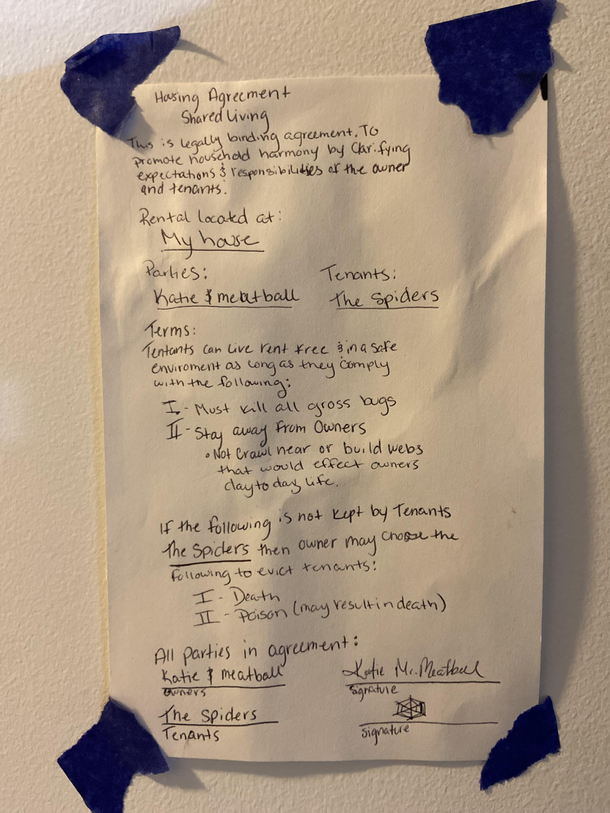 Housing Agreement
Shared Living
This is legally binding agreement, To
promote household harmony by Clarifying
expectations & responsibilities of the owner
and tenants.
Rental located at:
My house
Parties: Tenants:
Katie & meatball The Spiders
Terms:
Tentants can live rent free & in a safe
enviroment as long as they comply
with the following:
I - Must kill all gross bugs
II - Stay away from Owners
• Not Crawl near or build webs
that would effect owners
day to day life.
If the following is not kept by Tenants
The Spiders then owner may choose the
following to evict tenants:
I - Death
II - Poison (may result in death)
All parties in agreement:
Katie & meatball Katie Mr. Meatball
owners Signature
The Spiders
Tenants Signature